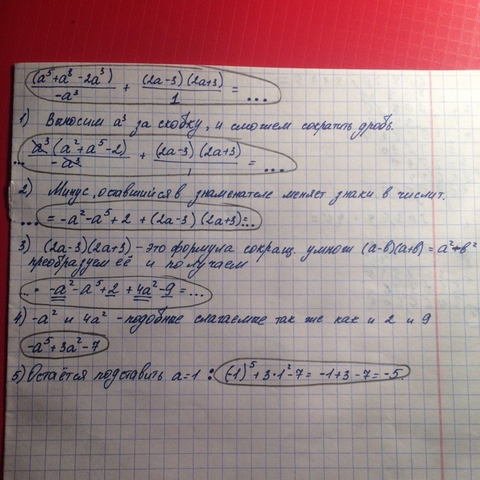 (a⁵+a⁸-2a³)/-a³ + (2a-3)(2a+3)/1 = ...
1) Выносим a³ за скобку, и сможем сократить дробь.
... a³(a²+a⁵-2)/-a³ + (2a-3)(2a+3)/1 = ...
2) Минус, оставшийся в знаменателе меняет знаки в числит.
... = -a²-a⁵+2 + (2a-3)(2a+3)=...
3) (2a-3)(2a+3) - это формула сокращ. умнож (a-b)(a+b)=a²-b²
преобразуем её и получаем
... = -a²-a⁵+2+4a²-9=...
4) -a² и 4a² - подобные слагаемые так же как и 2 и 9
-a⁵+3a²-7
5) Остаётся подставить a=1 : (-1)⁵+3·1²-7= -1+3-7=-5.